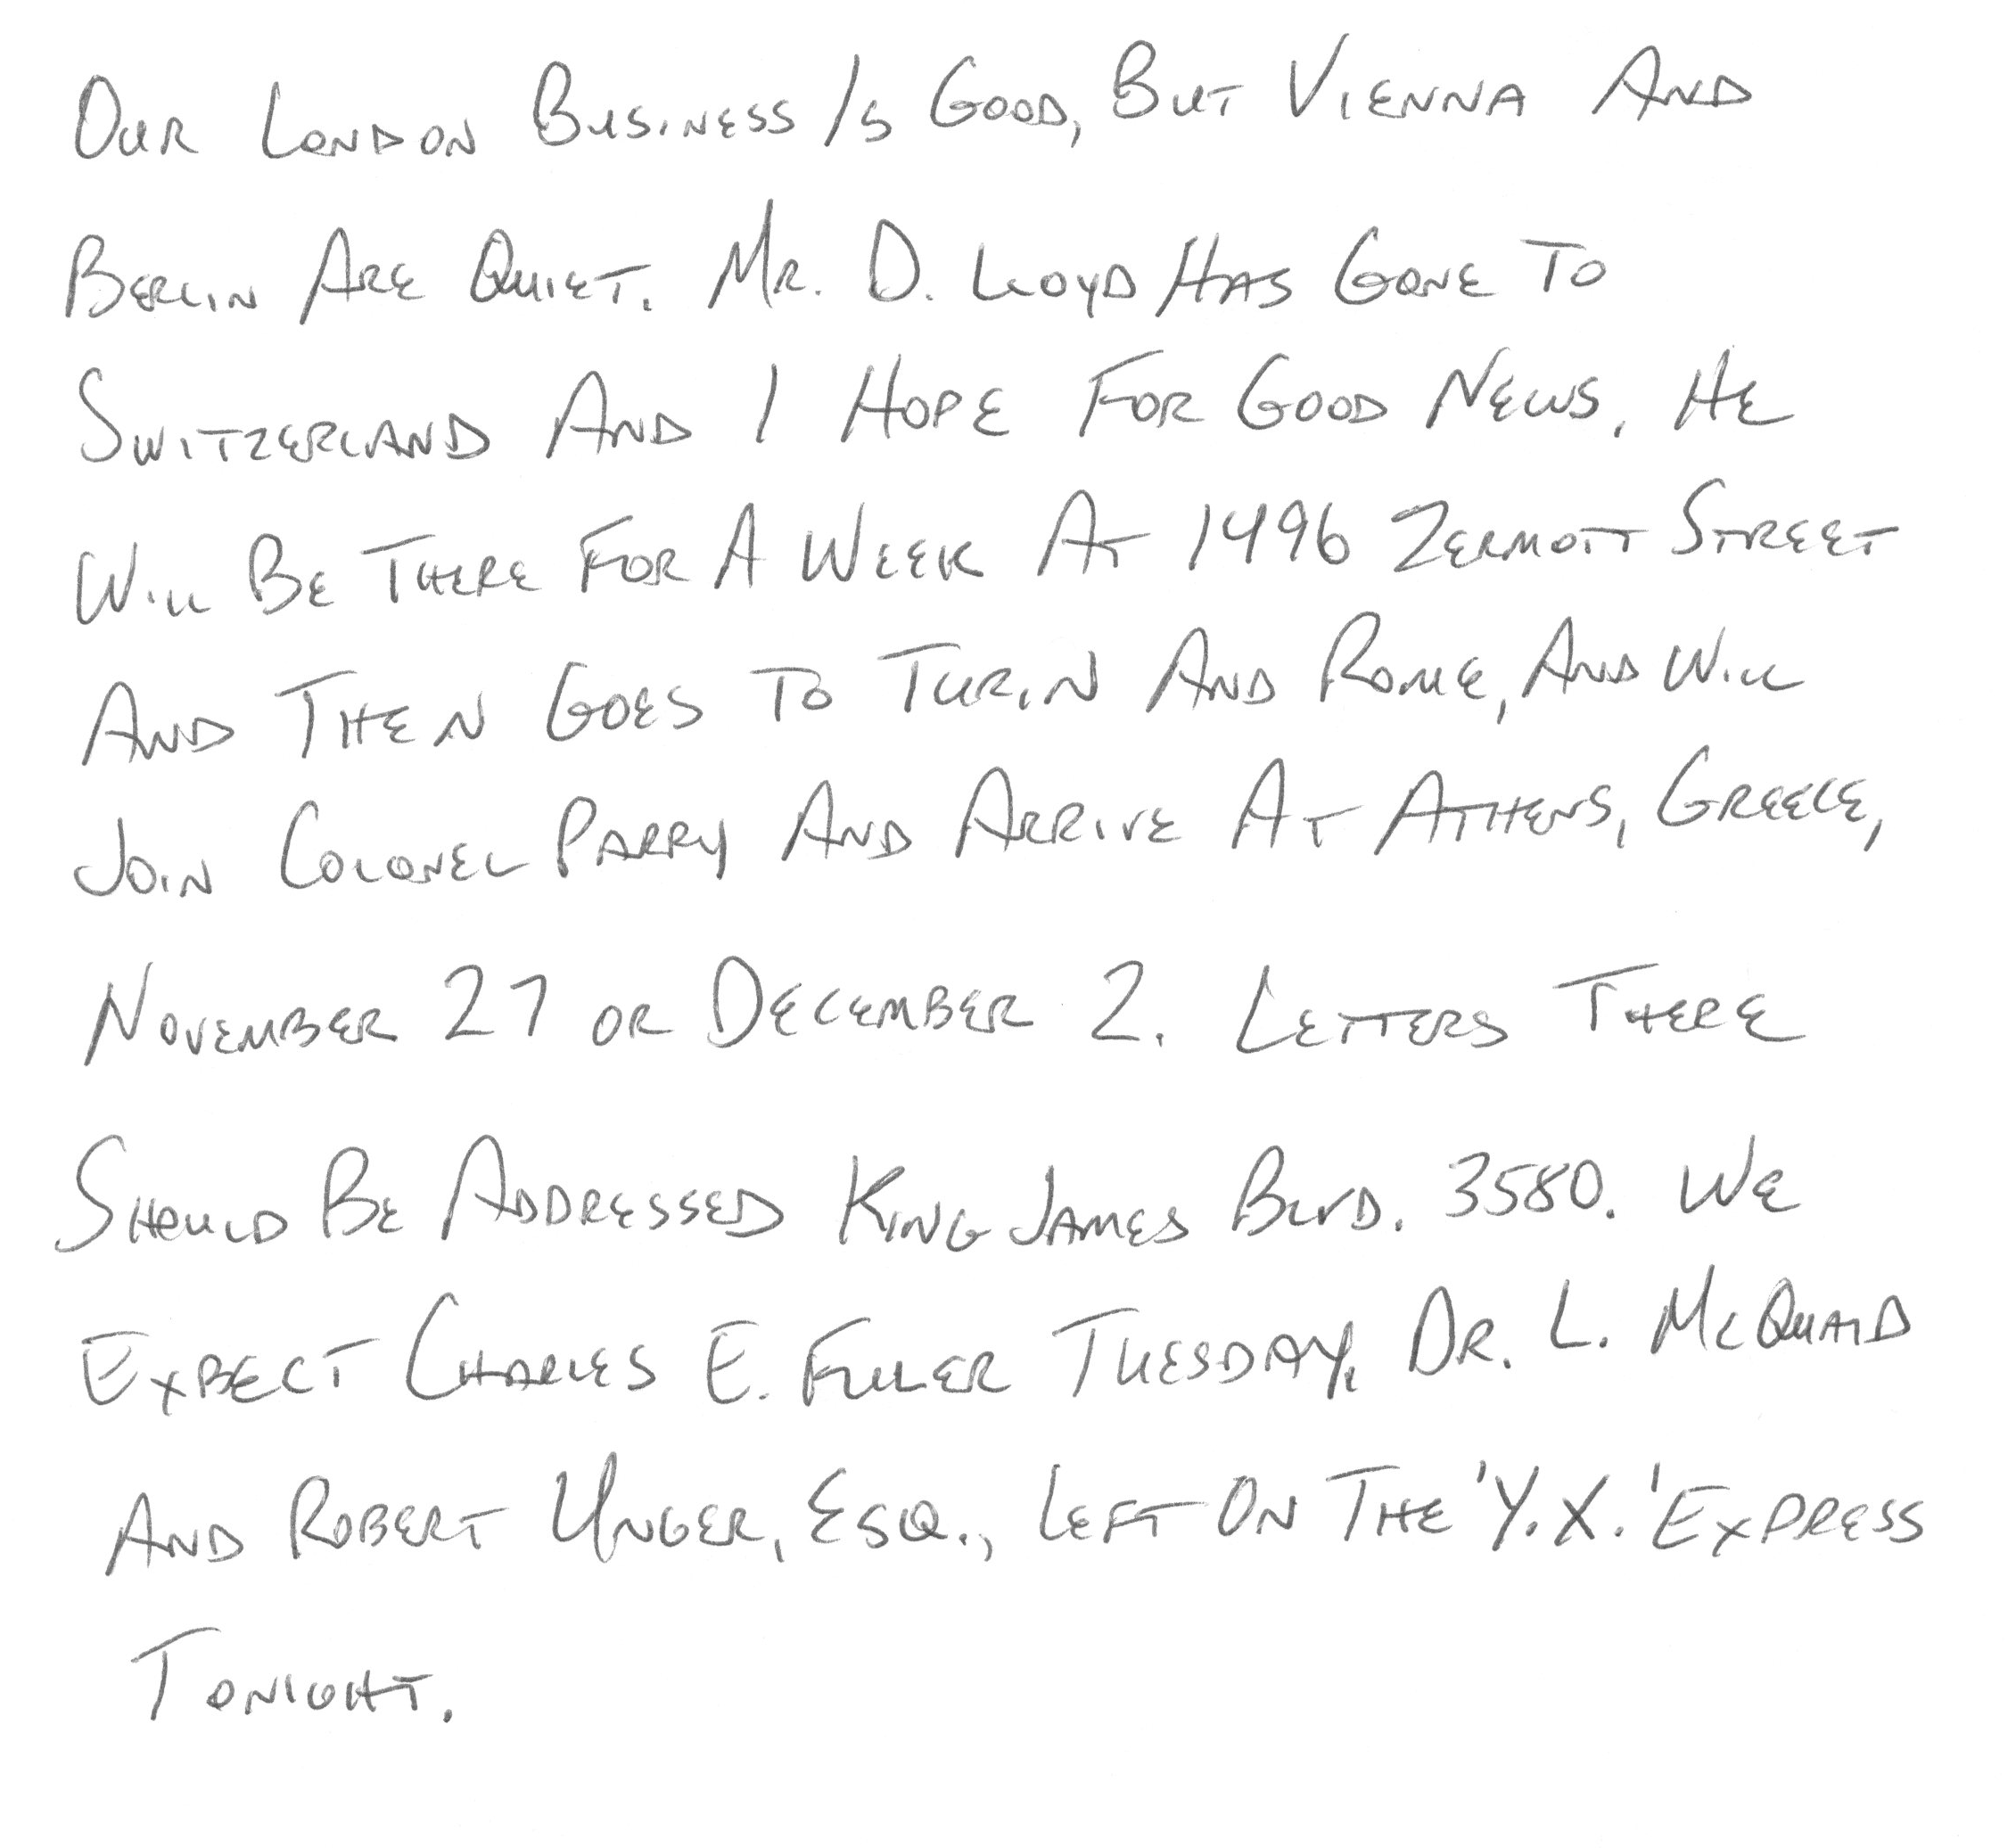 Our London Business Is Good, But Vienna And
Berlin Are Quiet. Mr. D. Lloyd Has Gone To
Switzerland And I Hope For Good News. He
Will Be There For A Week At 1496 Zermott Street
And Then Goes To Turin And Rome, And Will
Join Colonel Parry And Arrive At Athens, Greece,
November 27 or December 2. Letters There
Should Be Addressed King James Blvd. 3580. We
Expect Charles E. Fuller Tuesday. Dr. L. McQuaid
And Robert Unger, Esq., Left On The 'Y.X.' Express
Tonight.